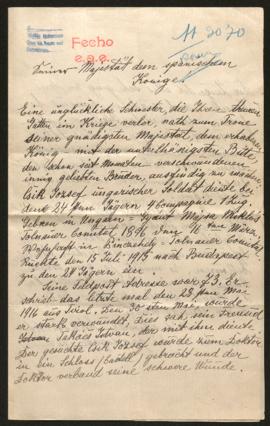 Fecho
e.a.e.
11 20 70
Seiner Majestät dem spanischen
Könige
Eine unglückliche Schwester, die Ihren treuen
Gatten im Kriege verlor naht zum Trone
seiner gnädigsten Majestät, dem erhabenen
König mit der unterthänigsten Bitte,
den schon seit Monaten verschwundenen
innig geliebten Bruder, ausfindig zu machen.
Csik József ungarischer Soldat diente bei
dem 24 Jägern 4 Compagnie 1 Zug.
Geboren in Ungarn
Solnaer Comitat, 1896 den 16 ten März.
Wohnhaft in Solnaer Comitat,
Rückte den 15 Juli 1915 nach Budapest
zu den 24 Jägern ein
Seine Feldpost Adresse war 73. Er
schrieb das letzte mal den 28 ten Mai
1916 aus Tirol. Den 30-sten Mai wurde
er stark verwundet, dies sah sein Freund
Takács István, der mit ihm diente.
Der gesuchte Csik József wurde zum Doktor
in ein Schloss gebracht und der
Doktor verband seine schwere Wunde.